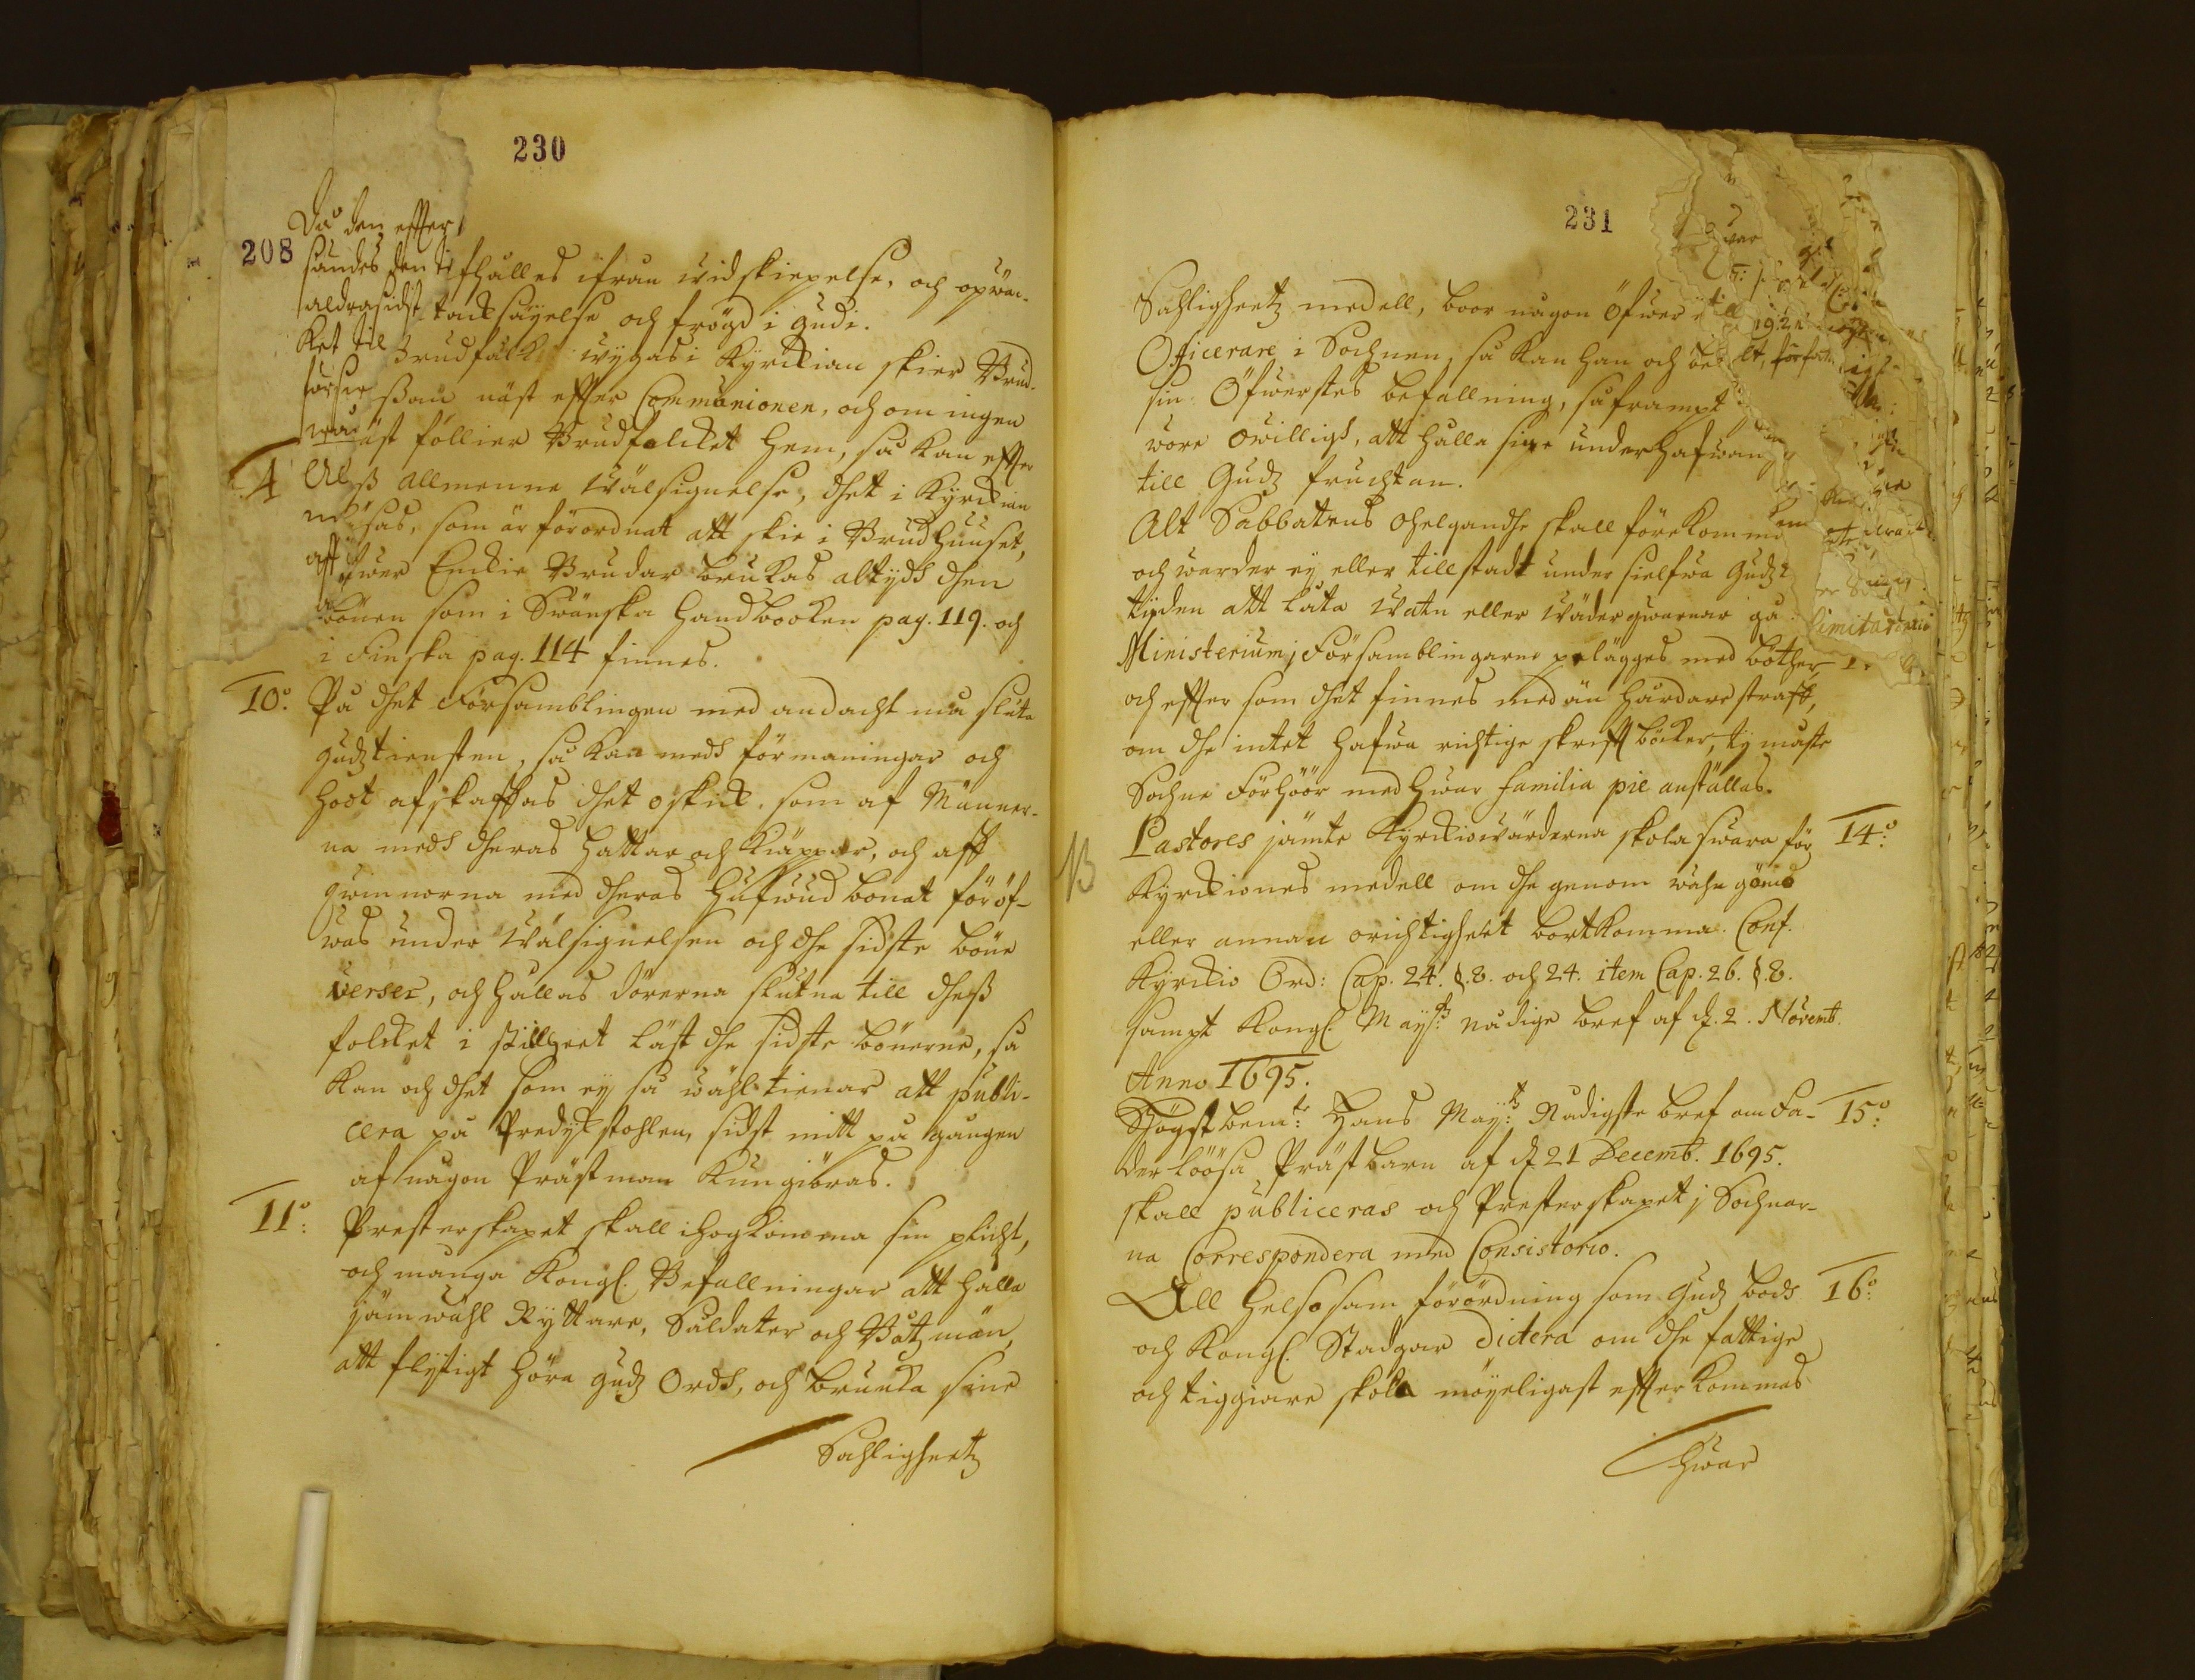 230
208
Då den effter
sändes den ti
aldrasidst
ket til
förser
må
4
Al
afhålles ifrån widskiepelse, och opwäc-
tacksäyelse och frögd i Gudi.
Brudfålk wygas i Kyrckian skier Brud-
näst effter Communionen, och om ingen
äst föllier Brudfolcket hem, så kan effter
ß allmenne Wälsignelse, dhet i Kyrckian
läsas, som är förordnat att skie i Brudhuuset,
öfwer Enckie Brudar brukas altydh dhen
bönen som i Swänska handbooken pag. 119. och
i Finska pag. 114 finnes.
10:o På dhet Församblingen med andacht må sluta
gudztiensten, så kan medh förmaningar och
hoot afskaffas dhet oskick, som af Männer-
na medh dheras hattar och Kiäppar, och aff
qwinnorna med dheras hufwud bonat föröf-
was under Wälsignelsen och dhe sidste böne
verser, och hållas dörerna slutna till dheß
folcket i stillheet läst dhe sidste bönerne, så
kan och dhet som ey så wähl tienar att publi-
cera på Predykstohlen, sidst mitt på gången
af någon Prästman kungiöras.
11:o Presterskapet skall ihogkomma sin plicht,
och många Kongl. Befallningar att hålla
jämwähl Ryttare, Saldater och Båtzmän,
att flytigt höra Gudz Ordh, och bruuka sine
Sahligheetz
231
Sahligheetz medell, boor någon Öfwer
Officerare i Sochnen, så kan han och be
sin Öfwerstes befallning, så frampt
wore owilligh, att hålla sine underhafwan
till Gudz fruchtan.
Alt Sabbatens ohelgandhe skall förekomma
och warder ey eller tillstadt under sielfwa Gudz
tijden att låta Watn eller Wäder qwarnar gå
Ministerium j Församblingarne pålägges med böther
och effter som dhet finnes med än hårdare straff,
om dhe intet hafwa richtige skrifft böcker, ty måste
Sochne Förhöör med hwar familia pie anställas.
Pastores jämte Kyrckiowärderna skola swara för 14:o
Kyrckiones medell om dhe genom wahn gömo
eller annan orichtigheet bortkomma. Conf.
Kyrckio Ord: Cap. 24. §. 8. och 24. item Cap. 26. §. 8.
sampt Kongl. Maytz nådige bref af d. 2. Novemb.
Anno 1695.
Högstbemte: Hans Maytz Nådigste bref om Fa- 15:o
der löösa Präst barn af d 21 Decemb. 1695.
skall publiceras och Presterskapet j Sochnar-
na Correspondera med Consistorio.
All helsosam förordning som Gudz bodh 16:o
och Kongl. Stadgar dictera om dhe fattige
och tiggiare skola möyeligast effterkommas
Hwar